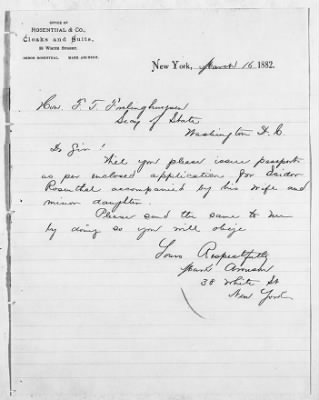 OFFICE OF
ROSENTHAL & CO.,
Cloaks and Suits,
38 WHITE STREET.
ISIDOR ROSENTHAL. MARK ARNSON.
New York, March 16 1882.
Hon F. T. Frelinghuysen
Secy of State
Washington D. C
Dr Sir!
Will you please issue passport
as per enclosed application for Isidor
Rosenthal accompanied by his wife and
minor daughter.
Please send the same to me
by doing so you will oblige
Yours Respectfully
Mark Arnson
38 White St
New York